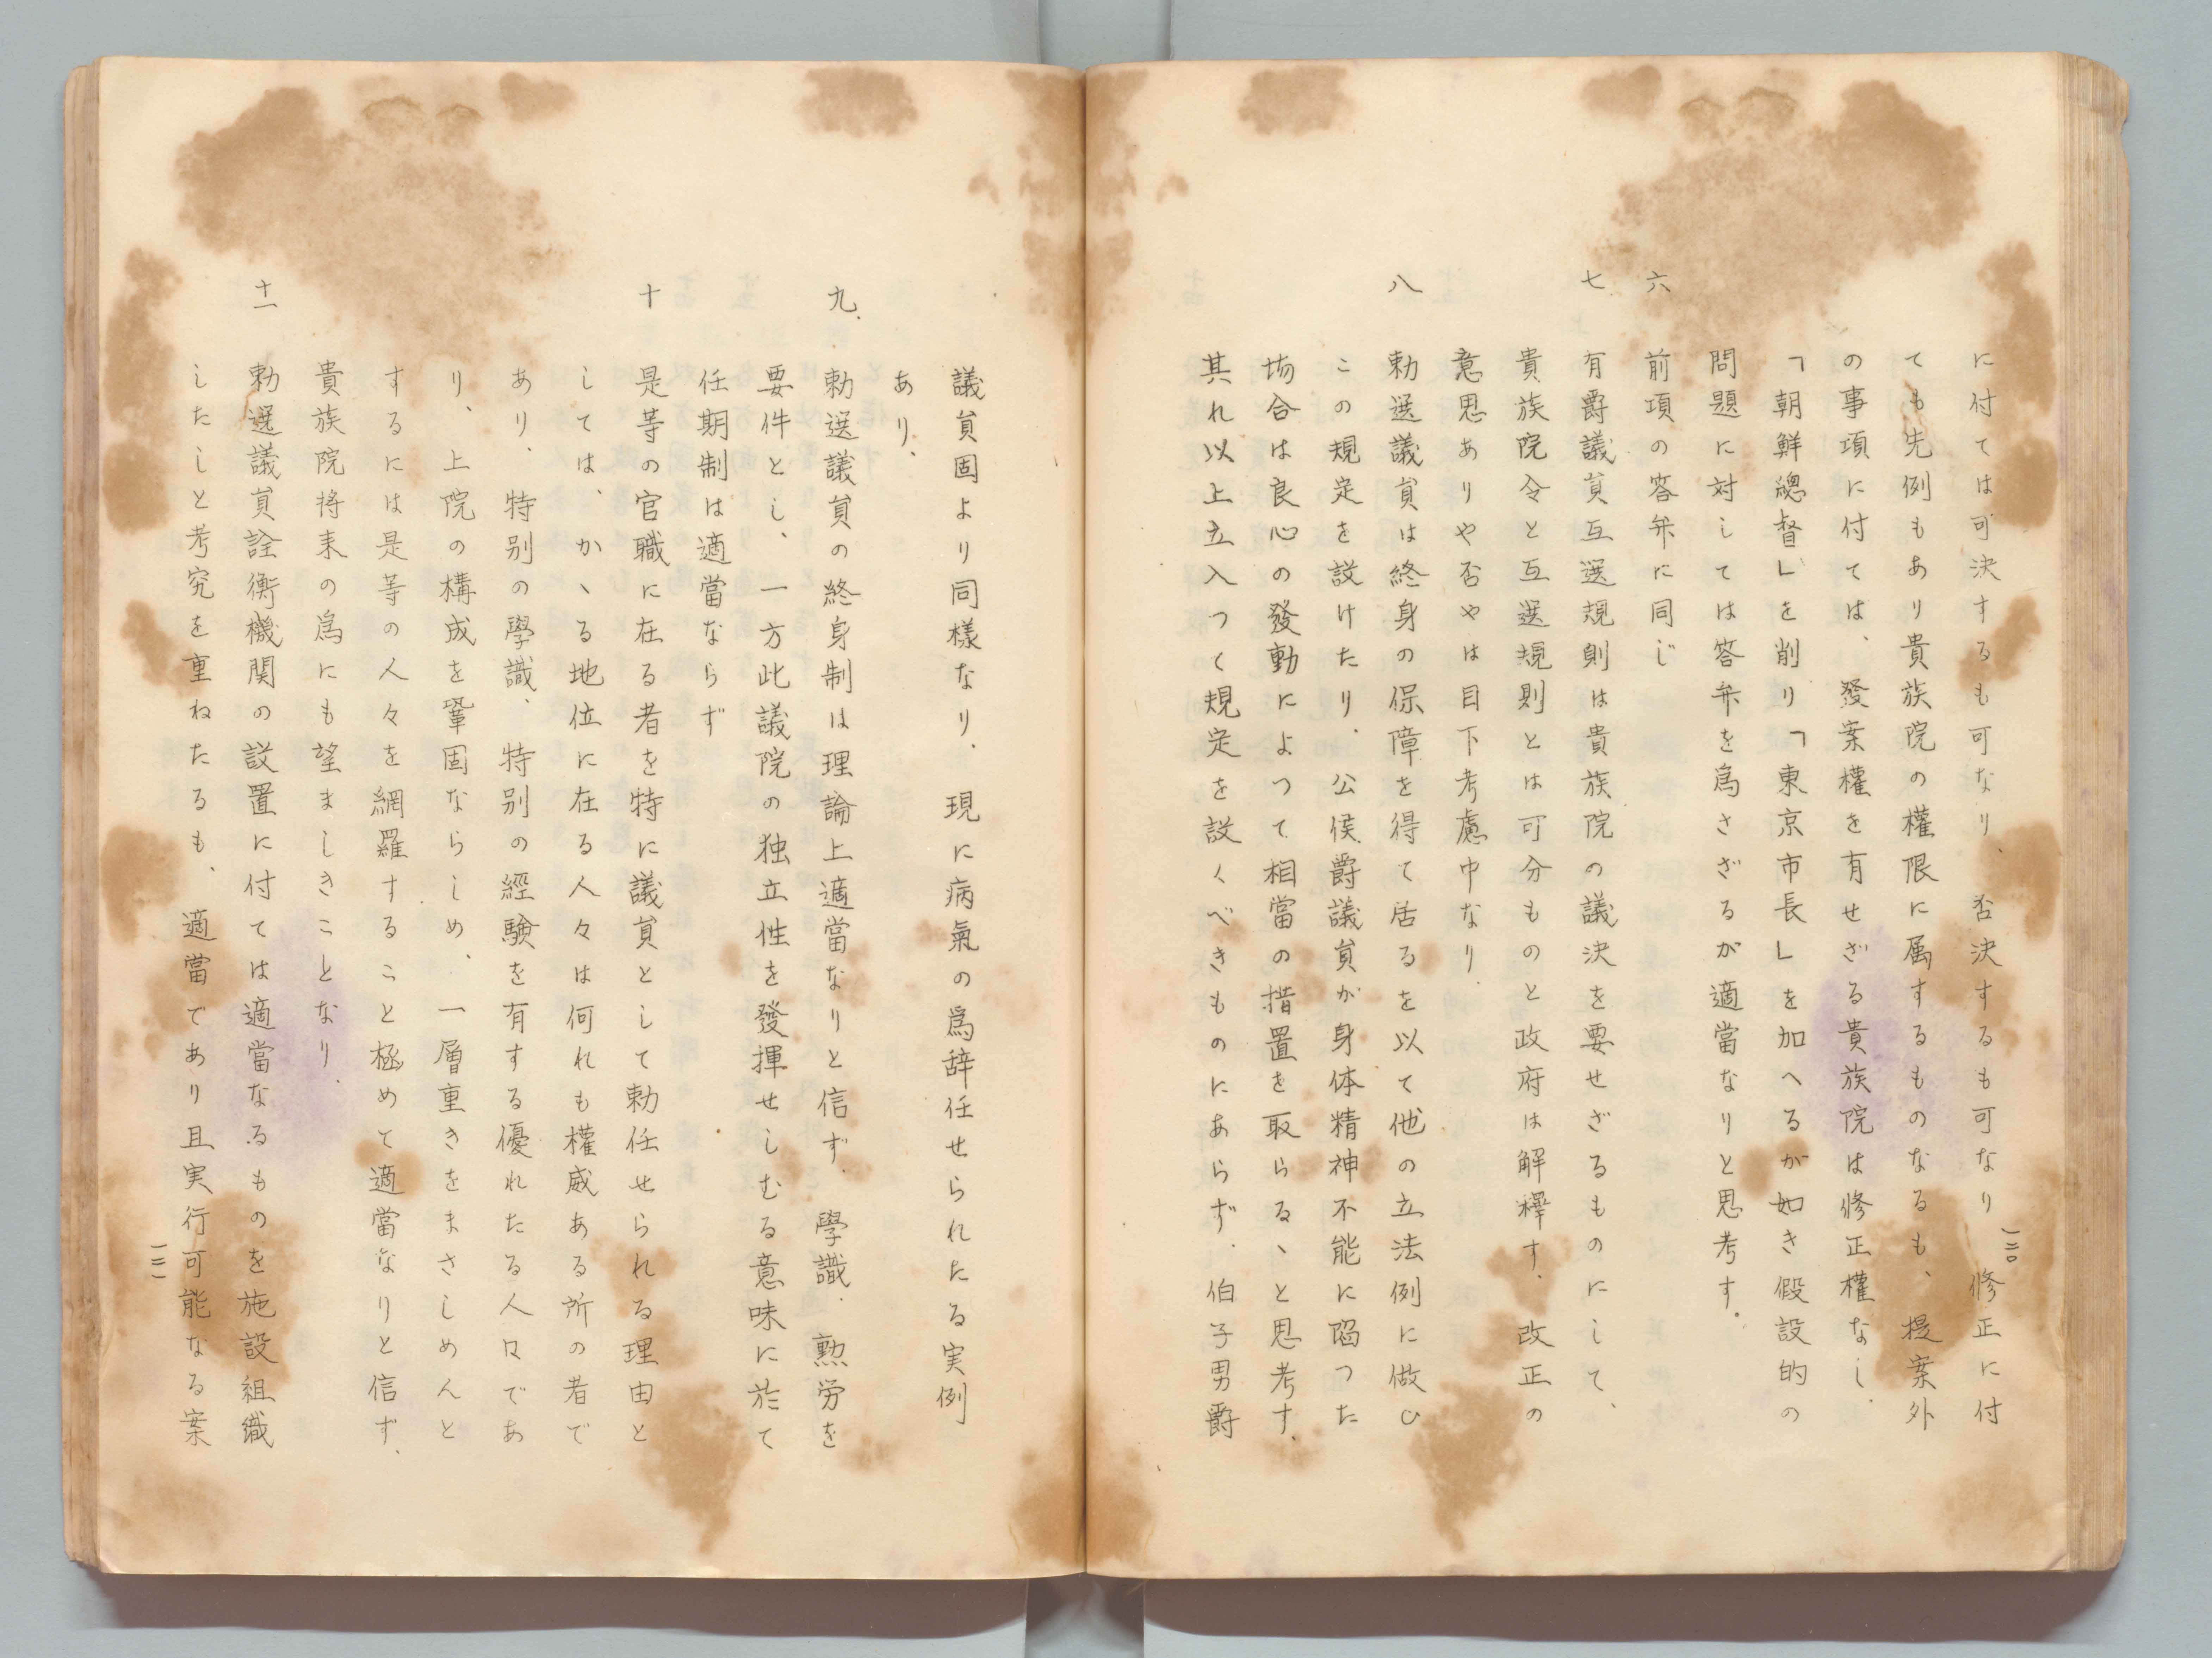 に付ては可決するも可なり、否決するも可なり 修正に付
ても先例もあり貴族院の權限に属するものなるも、提案外
の事項に付ては、發案權を有せざる貴族院は修正權なし.
「朝鮮總督」を削り「東京市長」を加へるが如き假設的の
問題に対しては答弁を爲さざるが適當なりと思考す。
六 前項の答弁に同じ
七 有爵議員互選規則は貴族院の議決を要せざるものにして、
貴族院令と互選規則とは可分ものと政府は解釋す、改正の
意思ありや否やは目下考慮中なり.
八 勅選議員は終身の保障を得て居るを以て他の立法例に做ひ
この規定を設けたり、公侯爵議員が身体精神不能に陷つた
場合は良心の發動によつて相當の措置を取らるゝと思考す.
其れ以上立入つて規定を設くべきものにあらず.伯子男爵
一三〇
議員固より同樣なり、現に病氣の爲辞任せられたる実例
あり、
九. 勅選議員の終身制は理論上適當なりと信ず.學識.勲労を
要件とし、一方此議院の独立性を發揮せしむる意味に於て
任期制は適當ならず
十 是等の官職に在る者を特に議員として勅任せられる理由と
しては、かゝる地位に在る人々は何れも權威ある所の者で
あり、特別の學識、特別の經験を有する優れたる人々であ
り、上院の構成を鞏固ならしめ、一層重きをまさしめんと
するには是等の人々を網羅すること極めて適當なりと信ず、
貴族院将来の爲にも望ましきことなり.
十一 勅選議員詮衡機関の設置に付ては適當なるものを施設組織
したしと考究を重ねたるも、適當であり且実行可能なる案
一三一